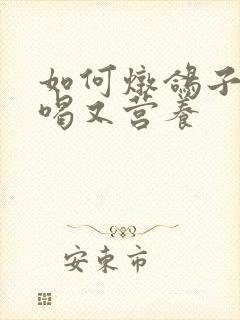 如何燉鴿子
喝又营养
安東市